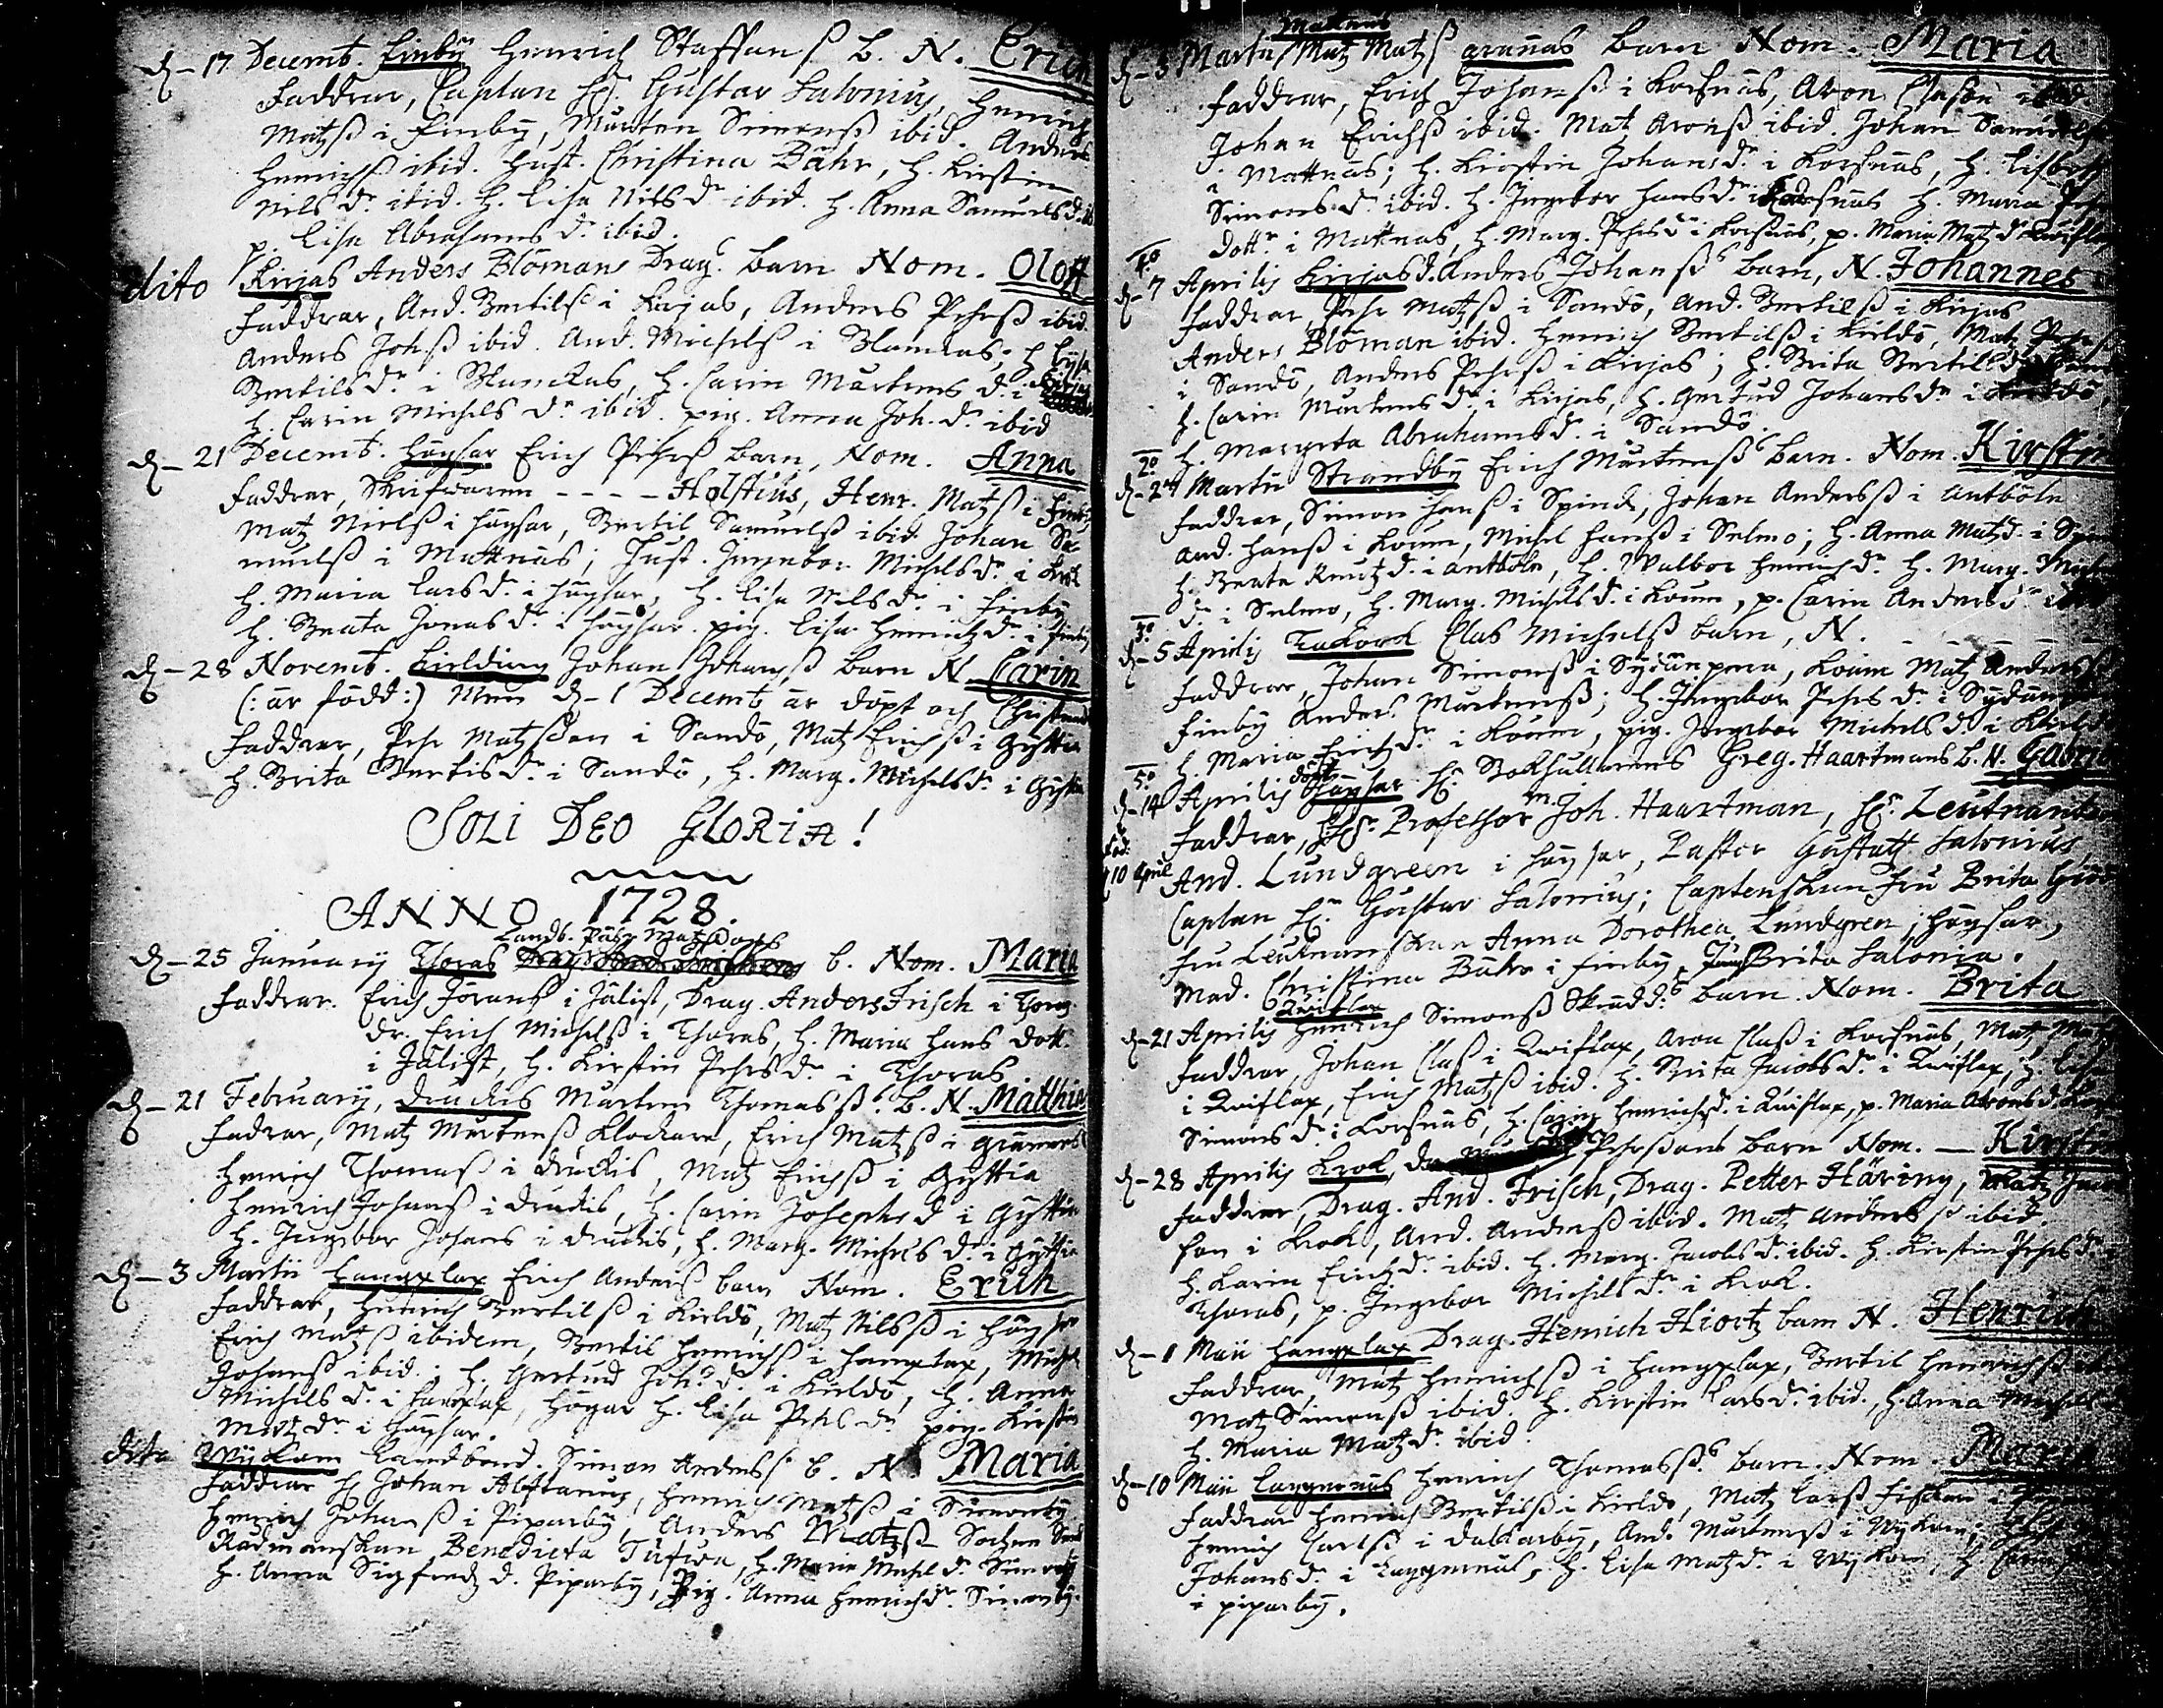 d. 17 Decemb. Finby Henrich Staffanß b. N. Erich
Faddrar, Caplan H. Gustav Salonius, Henrich
Matzß i Finby, Mårten Simonß ibid. Anders
Henrichß ibid. Hust. Christina Bähr, h. Kirstin
Nilsd:r ibid. h. Lisa Nilsd:r ibid. h. Anna Samuelsd:r
p. Lisa Abrahamsd:r ibid.
dito Kirjas Anders Blomans Drag:s barn Nom. Oloff
Faddrar, And. Bertilß i Kirjas, Anders Pehrß ibid.
Anders Johß ibid. And. Michelß i
Bertilsd:r i h. Carin Mårtensd:r i
h. Carin Michelsd:r ibid. pig. Anna Joh.d:r ibid
d. 21 Decemb. Häysar Erich Pehrß barn, Nom. Anna
Faddrar, Skrifwaren - - - - Holstius, Henr. Matzß i Finby
Matz Nielß i Häysar, Bertil Samuelß ibid. Johan Sa-
muelß i Mattnäs; Hust. Ingebor Michelsd:r i
h. Maria Larsd:r i Häysar, h. Lisa Nilsd:r i Finby
h. Beata Jonasd:r i Häysar. pig. Lisa Henrichzd:r i Finby
d. 28 Novemb. Kielding Johan Johanß barn N. Carin
(: är född :) Men d. 1 Decemb är döpt och Christnad
Faddrar, Pehr Matzßon i Sandö, Matz Erichß i Gyttia
h. Brita Bertilsd:r i Sandö, h. Marg. Michelsd:r i Gyttia
SOLI DEO GLORIA!
ANNO 1728.
Landb. Påhl Matzßons
d. 25 January Thoras b. Nom. Maria
Faddrar. Erich Jöranß i Jälist, Drag. Anders Frisch i Thoras
dr. Erich Michelß i Thoras, h. Maria Hans dott.
i Jälist, h. Kirstin Pehrsd:r i Thoras
d. 21 February, Druckis Mårten Thomasß b. N. Matthias
Fadrar, Matz Mårtenß Klockare, Erich Matzß i
Henrich Thomasß i Druckis, Matz Erichß i Gyttia
Henrich Johanß i Druckis, h. Carin Josephsd. i Gyttia
h. Ingebor Johans i Druckis, h. Marg. Michelsd:r i Gyttia
d. 3 Martii Hangxlax Erich Anderß barn Nom. Erich
Faddrar, Henrich Bertilß i Kieldö, Matz Nilsß i Häysar
Erich Matzß ibidem, Bertil Henrichß i Hangxlax, Michel
Johanß ibid; h. Gertrud Joh:sd. i Kieldö, h. Anna
Michelsd. i Hangxlax, h. Lisa Pehrsd:r pig. Kirstin
Matzd:r i Häysar.
dito Wykom Landbond. Simon Andersß b. N. Maria
Faddrar H Johan Alftanus, Henrich Matzß i Simonby
Henrich Johanß i Piparby, Anders Matzß Sochne
Rådmanskan Benedicta h. Maria Michelsd:r Simonby
h. Anna Sigfredzd. Piparby, Pig. Anna Henrichsd:r Simonby.
Mattnäs
d. 3 Martii Matz Matzß barn Nom. Maria
Faddrar, Erich Johanß i Korsnäs, Aron Clason ibid
Johan Erichß ibid. Matz Aronß ibid. Johan Samuelß
i Mattnäs; h. Kirstin Johansd:r i Korsnäs, h. Lisbeth
Simonsd:r ibid. h. Ingebor Hansd:r i Korsnäs h. Maria Pehrs
dott:r i Mattnäs, h. Marg. Pehrsd:r i Korsnäs, p. Maria Matzd:r Qwiflax
4:o
d. 7 Aprilis Kirjas d. Anders Johanß barn, N. Johannes
Faddrar, Pehr Matzß i Sandö, And. Bertilß i Kirjas
Anders Bloman ibid. Henrich Bertilß i Kieldö, Matz Pehrß
i Sandö, Anders Pehrß i Kirjas; h. Brita Bertilsd:r
h. Carin Mårtensd:r i Kirjas, h. Gertud Johansd:r i Kieldö,
h. Margeta Abrahamsd:r i Sandö.
2:o
d. 24 Martii Strandby Erich Mårtenß barn. Nom. Kirstin
Faddrar, Simon Hanß i Spink, Johan Andersß i Antböle
And. Hanß i Koum, Michel Hanß i Selmo; h. Anna Matzd. i
h. Beata Knutzd. i Antböle, h. Walbor Henrichsd:r h. Marg. Michels
d:r i Selmo, h. Marg. Michelsd. i Koum, p. Carin Andersd:r ibid
3:o
d. 5 Aprilis Tackork Clas Michelß barn, N. - - - -
Faddrar, Johan Simonß i Sydänpera, Koum Matz Andersß
Finby Anders Mårtenß; h. Ingebor Pehrsd:r i Sydänpera
h. Maria Erichzd:r i Koum, pig. Ingebor Michelsd:r i
5:o döpt
d. 14 Aprilis Häysar H:r Bokhållarens Greg. Haartmans b. N. Gabriel
Faddrar, H:r Professor m. Joh. Haartman, H:r Leutnanten
Föd. 10 April And. Lundgreen i Häysar, Pastor Gustatz Salonius,
Caplan H:r Gustav Salonius; Captenskan Fru Brita
Fru Leutnantskan Anna Dorothea Lundgren, Häysar,
Mad. Christina Bähr i Finby, Jungf. Brita Salonia.
Qwiflax
d. 21 Aprilis Henrich Simonß Skrädd:s barn. Nom. Brita
Faddrar, Johan Claß i Qwiflax, Aron Claß i Korsnäs, Matz
i Qwiflax, Erich Matzß ibid. h. Brita Jacobsd:r i Qwiflax, h. Lisa
Simonsd:r i Korsnäs, h. Carin Henrichsd. i Qwiflax, p. Maria Aronsd.
d. 28 Aprilis Krok, Pehrßons barn Nom. — Kirstin
Faddrar, Drag. And. Frisch, Drag. Petter Häring, Matz
son i Krok, And. Anderß ibid. Matz Andersß ibid.
h. Karin Erichzd:r ibid. h. Marg. Jacobsd:r ibid. h. Kirstin Pehrsd:r
Thoras, p. Ingebor Michelsd:r i Krok.
d. 1 Maii Hangxlax Drag. Henrich Hiortz barn N. Henrich
Faddrar, Matz Henrichß i Hangxlax, Bertil Henrichß
Matz Simonß ibid. h. Kirstin Larsd:r ibid., h. Anna Michels
h. Maria Matzd:r ibid.
d. 10 Maii Laggarnäs Henrich Thomasß barn. Nom. Maria
Faddrar Henrich Bertilß i Kieldö, Matz Larsß
Henrich Carlß i Dalkarby, And. Mårtenß i Wykom;
Johansd:r i Laggarnäs, h. Lisa Matzd:r i Wykom, h Carin
i piparby.